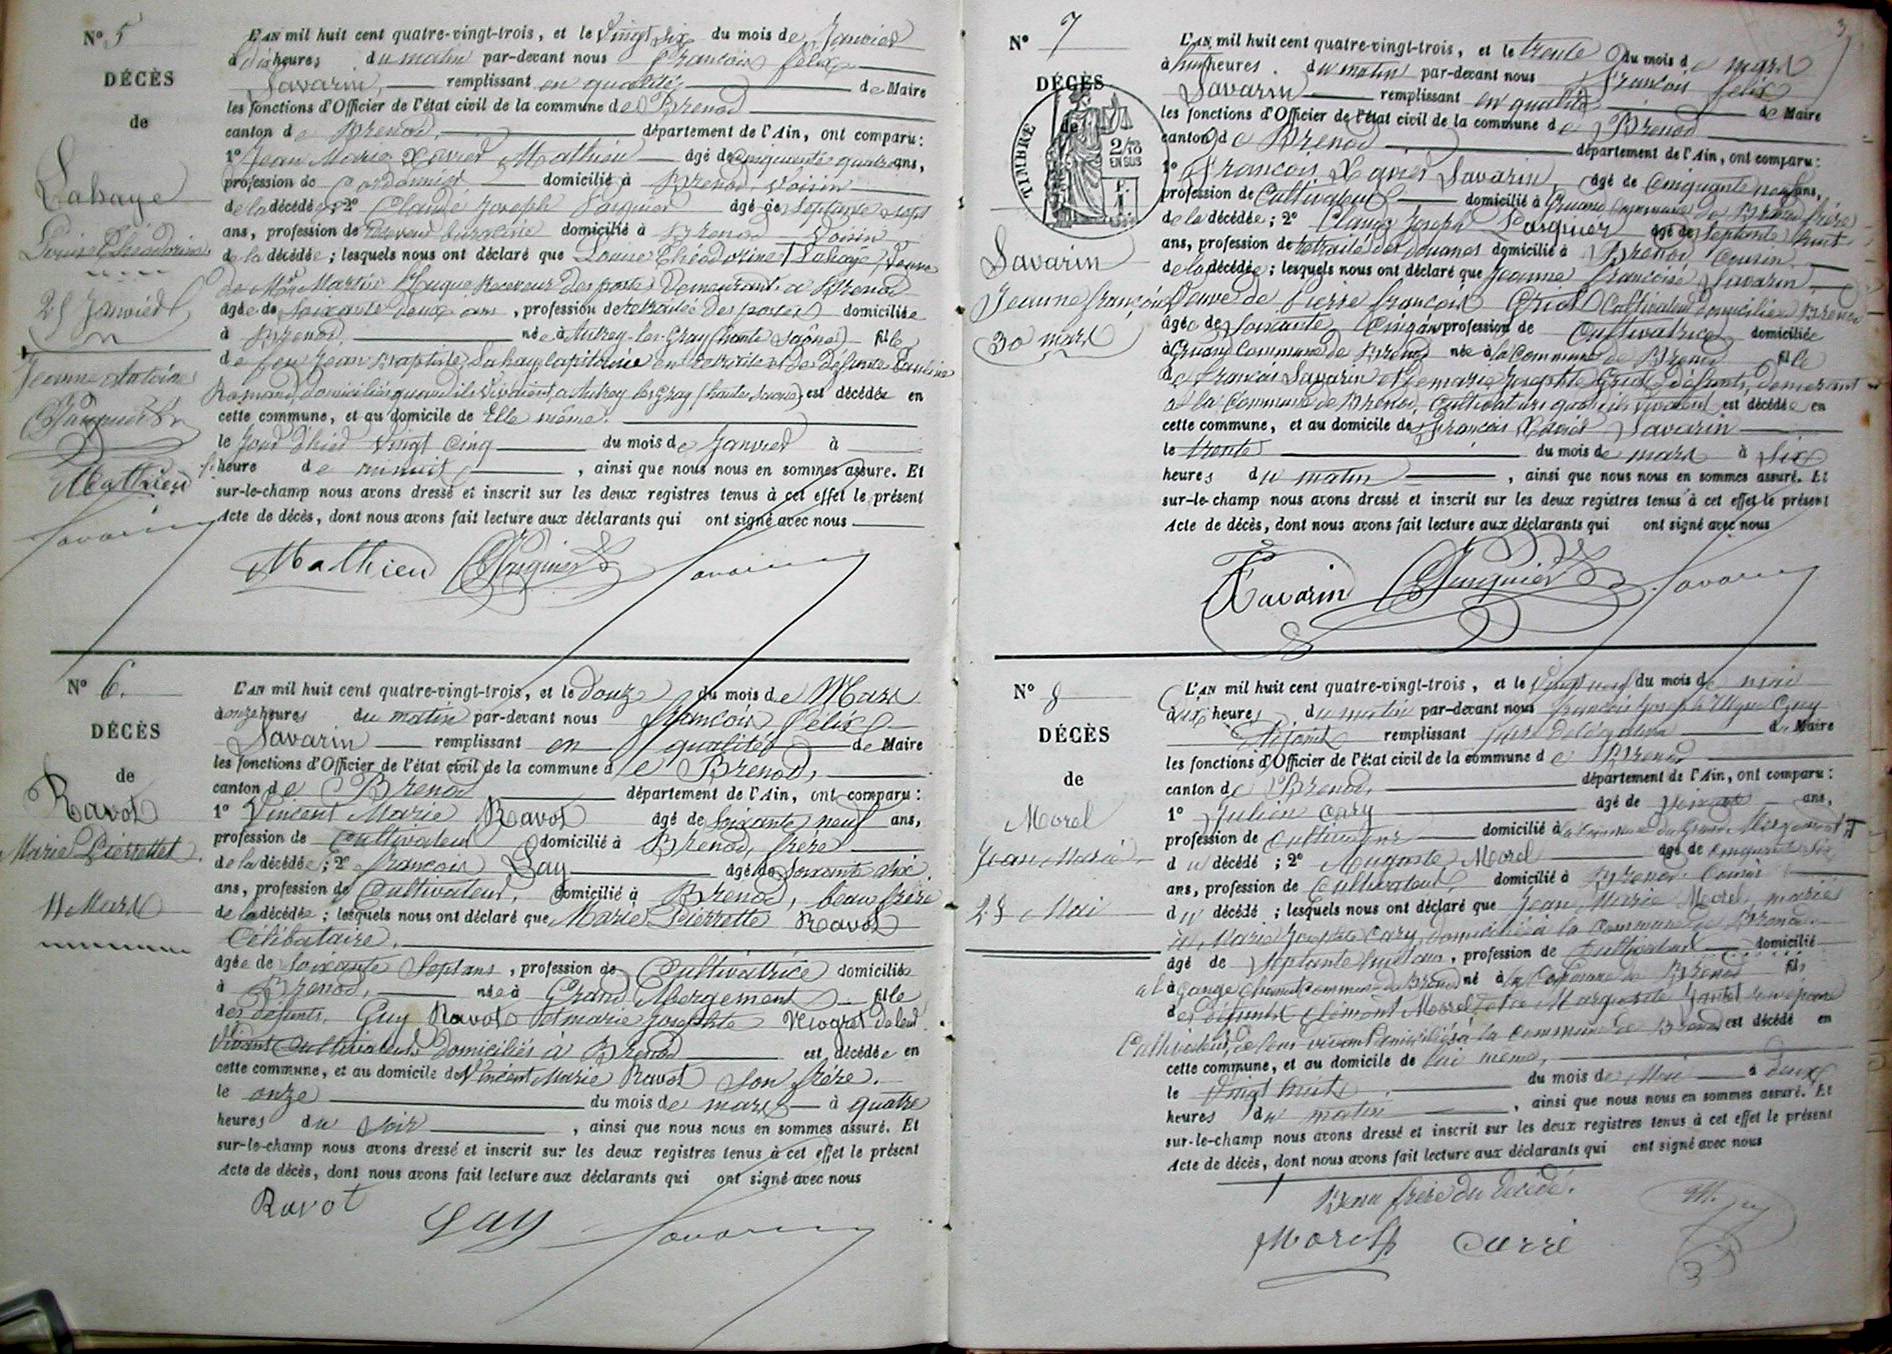 N° 5
DÉCÈS
de
Lahaye
Louise Théodorine
25 Janvier
Jeanne Antoine
Mathieu
Savarin
L'AN mil huit cent quatre-vingt-trois, et le vingt six du mois de Janvier
à dix heures du matin par-devant nous François félix
Savarin, remplissant en qualité de Maire
les fonctions d'Officier de l'état civil de la commune de Brenod
canton de Brenod, département de l'Ain, ont comparu :
1° Jean Marie Xavier Mathieu âgé de cinquante quatre ans,
profession de Cordonnier domicilié à Brenod, voisin
de la décédée ; 2° Claude Joseph Pasquier âgé de Septante Sept
ans, profession de domicilié à Brenod voisin
de la décédée ; lesquels nous ont déclaré que Louise Théodorine Lahaye, Veuve
de Mr Martin Receveur des postes Demeurant à Brenod
âgée de Soixante deux ans, profession de retraitée des postes domiciliée
à Brenod, née à Autrey-les-Gray (haute Saône) fille
de feu Jean Baptiste Lahaye Capitaine en retraite et de Défunte
domiciliés quand ils vivaient à Autrey les Gray est décédée en
cette commune, et au domicile de Elle même.
le jour d'hier vingt cinq du mois de Janvier à
heure de minuit, ainsi que nous nous en sommes assuré. Et
sur-le-champ nous avons dressé et inscrit sur les deux registres tenus à cet effet le présent
Acte de décès, dont nous avons fait lecture aux déclarants qui ont signé avec nous
Mathieu Pasquier Savarin
N° 6.
DÉCÈS
de
Ravot
Marie Pierrette
11 Mars
L'AN mil huit cent quatre-vingt-trois, et le douze du mois de Mars
à onze heures du matin par-devant nous François Félix
Savarin remplissant en qualité de Maire
les fonctions d'Officier de l'état civil de la commune de Brenod,
canton de Brenod département de l'Ain, ont comparu :
1° Vincent Marie Ravot âgé de Soixante neuf ans,
profession de Cultivateur domicilié à Brenod, frère
de la décédée ; 2° françois Gay âgé de Soixante dix
ans, profession de Cultivateur, domicilié à Brenod, beau frère
de la décédée ; lesquels nous ont déclaré que Marie Pierrette Ravot
Célibataire,
âgée de Soixante Sept ans, profession de Cultivatrice domiciliée
à Brenod, née à Grand Abergement fille
des défunts, Guy Ravot et marie Josephte Niogret de leur
vivant Cultivateurs domiciliés à Brenod est décédée en
cette commune, et au domicile de Vincent Marie Ravot Son frère.
le onze du mois de mars à quatre
heures du Soir, ainsi que nous nous en sommes assuré. Et
sur-le-champ nous avons dressé et inscrit sur les deux registres tenus à cet effet le présent
Acte de décès, dont nous avons fait lecture aux déclarants qui ont signé avec nous
Ravot Gay Savarin
3
N° 7
DÉCÈS
de
TIMBRE
2/10
EN SUS
Savarin
Jeanne françoise
30 mars
L'AN mil huit cent quatre-vingt-trois, et le trente du mois de mars
à huit heures du matin par-devant nous François félix
Savarin remplissant en qualité de Maire
les fonctions d'Officier de l'état civil de la commune de Brenod
canton de Brenod département de l'Ain, ont comparu :
1° François Xavier Savarin, âgé de Cinquante neuf ans,
profession de Cultivateur domicilié à commune de Brenod frère
de la décédée ; 2° Claude Joseph Pasquier âgé de Septante huit
ans, profession de retraité des Douanes domicilié à Brenod Cousin
de la décédée ; lesquels nous ont déclaré que Jeanne Françoise Savarin,
Veuve de Pierre françois Cultivateur domiciliée Brenod
âgée de Soixante Cinq ans profession de Cultivatrice domiciliée
à Commune de Brenod née à la Commune de Brenod fille
de francois Savarin et de marie Josephte défunts, demeurant
à la Commune de Brenod, Cultivateurs quand ils vivaient est décédée en
cette commune, et au domicile de François Xavier Savarin
le trente du mois de mars à Six
heures du matin, ainsi que nous nous en sommes assuré. Et
sur-le-champ nous avons dressé et inscrit sur les deux registres tenus à cet effet le présent
Acte de décès, dont nous avons fait lecture aux déclarants qui ont signé avec nous
Savarin Pasquier Savarin
N° 8
DÉCÈS
de
Morel
Jean Marie
28 Mai
L'AN mil huit cent quatre-vingt-trois, et le vingt neuf du mois de mai
à six heures du matin par-devant nous françois Joseph Guy
Adjoint remplissant par délégation de Maire
les fonctions d'Officier de l'état civil de la commune de Brenod
canton de Brenod, département de l'Ain, ont comparu :
1° Julien Cary âgé de ans,
profession de cultivateur domicilié à la Commune du
du décédé ; 2° Auguste Morel âgé de cinquante six
ans, profession de Cultivateur, domicilié à Brenod Cousin
du décédé ; lesquels nous ont déclaré que Jean Marie Morel, marié
à Marie Josephte Cary, domicilié à la Commune de Brenod.
âgé de Septante huit ans, profession de Cultivateur domicilié
à Commune de Brenod né à la Commune de Brenod fils
des défunts Clément Morel et de Marguerite
Cultivateurs, de leur vivant Domiciliés à la Commune de Brenod est décédé en
cette commune, et au domicile de lui même,
le vingt huit du mois de Mai à deux
heures du matin, ainsi que nous nous en sommes assuré. Et
sur-le-champ nous avons dressé et inscrit sur les deux registres tenus à cet effet le présent
Acte de décès, dont nous avons fait lecture aux déclarants qui ont signé avec nous
Beau frère du décédé.
Morel Carré